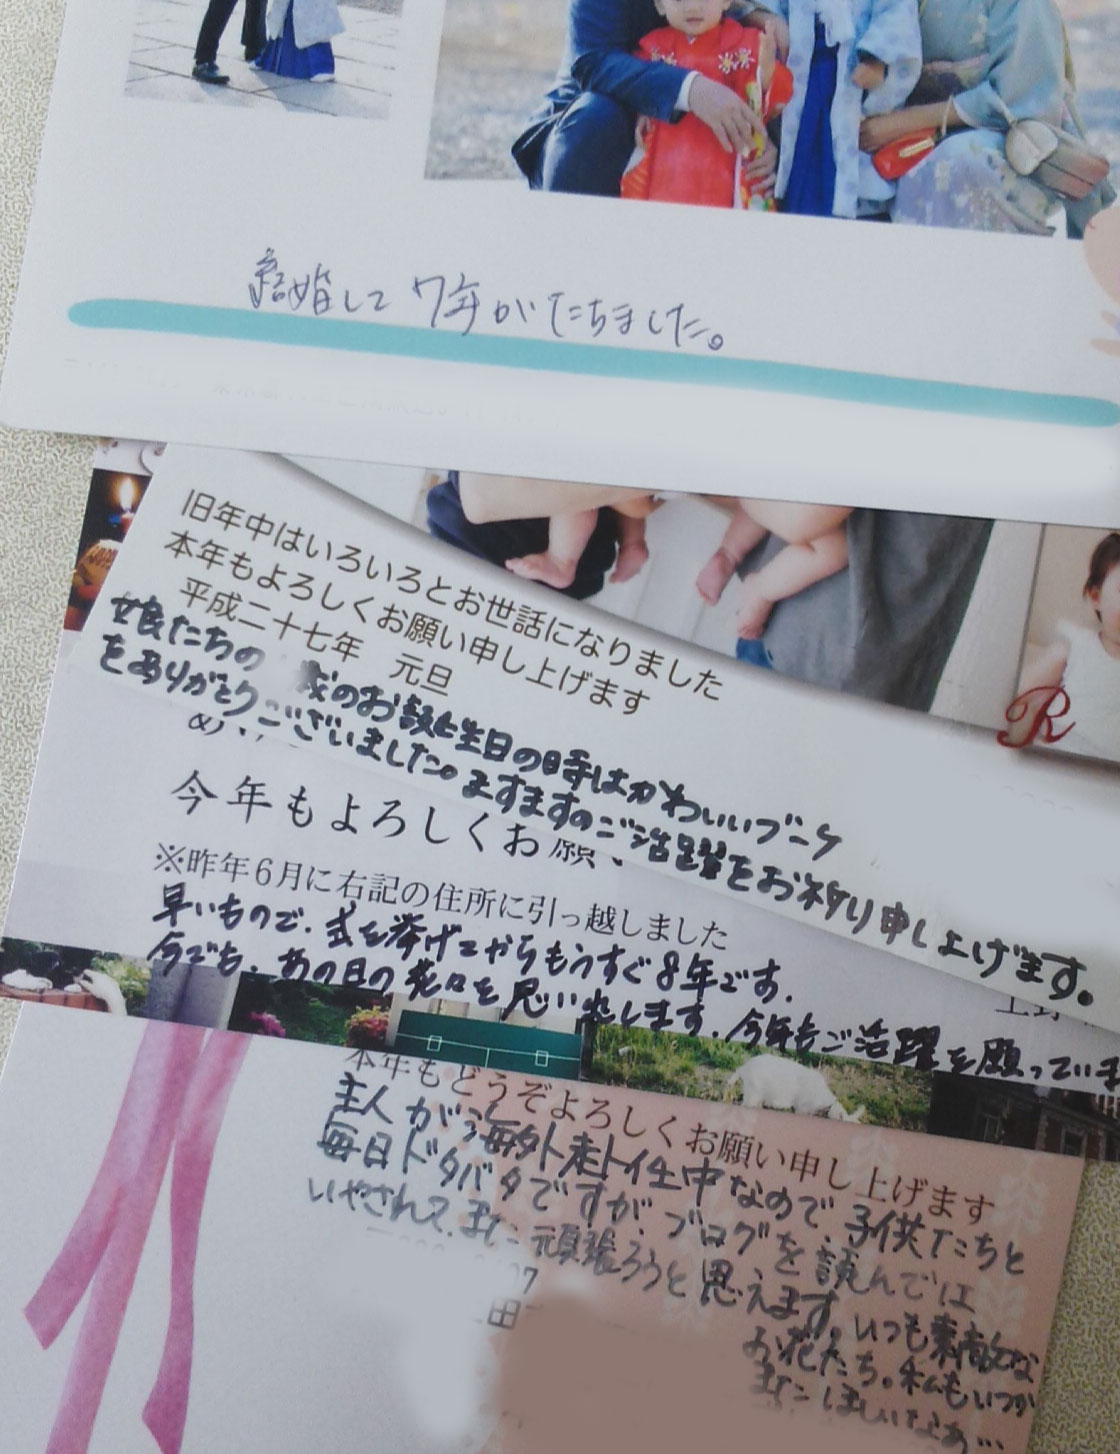 結婚して7年がたちました。
旧年中はいろいろとお世話になりました
本年もよろしくお願い申し上げます
平成二十七年 元旦
娘たちの 歳のお誕生日の時はかわいいブーケ
をありがとうございました。ますますのご活躍をお祈り申し上げます。
R
今年もよろしくお願い
※昨年6月に右記の住所に引っ越しました
早いもので、式を挙げてからもうすぐ8年です.
今でも、あの日の花々を思い出します. 今年もご活躍を願っていま
本年もどうぞよろしくお願い申し上げます
主人が海外赴任中なので、子供たちと
毎日ドタバタですが、ブログを読んでは
いやされて、また頑張ろうと思えます。いつも素敵な
お花たち。私もいつか
またほしいなあ…
田